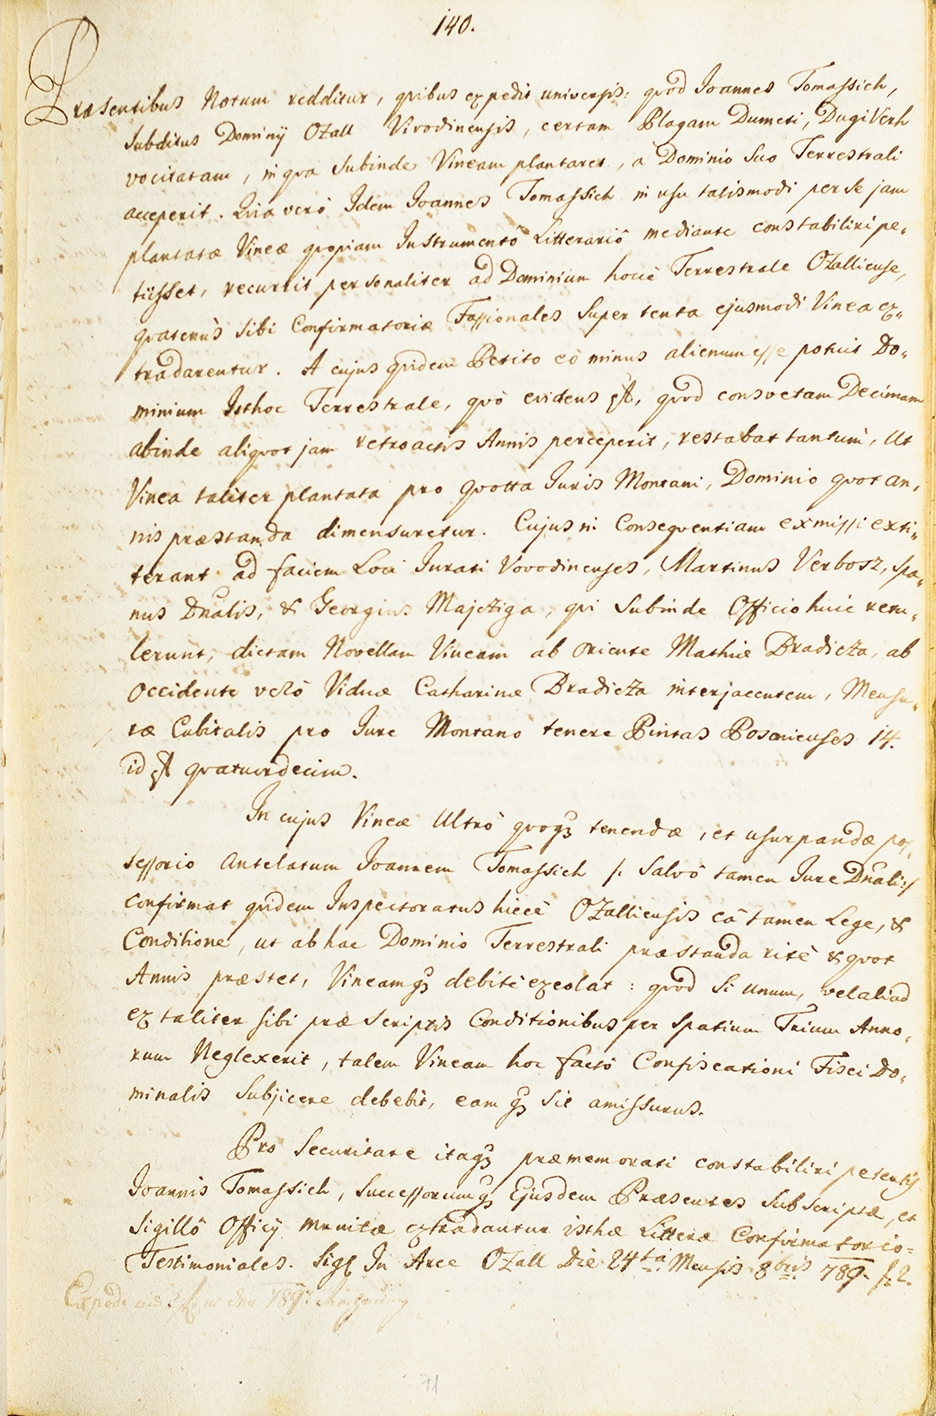 140.
Præsentibus Notum redditur, quibus expedit universis: quod Joannes Tomassich,
subditus Dominij Ozall Vivodinensis, certam Plagam Dumeti, Dugi Verh
vocitatam, in qva subinde Vineam plantaret, à Dominio suo Terrestrali
acceperit. Quia verò Idem Joannes Tomassich in usu talismodi per se jam
plantatæ Vineæ qvopiam Instrumentô Litterariô mediante constabiliri pe„
tiisset, recurrit personaliter ad Dominium hocce Terrestrale Ozalliense,
qvatenùs sibi Confirmatoriæ Fassionales super tenta ejusmodi Vinea ex„
tradarentur. A cujus qvidem Petito eò minus alienum esse potuit Do„
minium Isthoc Terrestrale, qvò evidens est, qvòd consvetam Decimam
abinde aliqvot jam retroactis Annis perceperit, restabat tantum, ut
Vinea taliter plantata pro Qvotta Juris Montani, Dominio qvot an„
nis præstanda dimensuretur. Cujus in Conseqventiam exmissi exti„
terant ad faciem Loci Jurati Vovodinenses, Martinus Verbosz, Spa„
nus Dnalis, & Georgius Majcziga, qvi subinde Officio huic retu„
lerunt, dictam Novellam Vineam ab oriente Mathiæ Bradicza, ab
occidente verò Viduæ Catharinæ Bradicza interjacentem, Mensu„
ræ Cubitalis pro Jure Montano tenere Pintas Posonienses 14.
id est qvatuordecim.
In cujus Vineæ ultrò qvoqz tenendæ, et usurpandæ pos„
sessorio antelatum Joannem Tomassich /: salvô tamen Jure Dnali :/
confirmat qvidem Inspectoratus hicce Ozalliensis eâ tamen Lege, &
Conditione, ut ab hac Dominio Terrestrali præstanda ritè & qvot
Annis præstet, Vineamqz debitè excolat: qvod si unum, vel aliud
ex taliter sibi præscriptis Conditionibus per spatium Trium Anno„
rum Neglexerit, talem Vineam hoc factô Confiscationi Fisci Do„
minalis subjicere debebit, eamqz sic amissurus.
Pro Securitate itaqz præmemorati constabiliri petentis
Joannis Tomassich, Successorumqz Ejusdem Præsentes Subscriptæ, et
Sigillô Officij munitæ extradantur isthæ Litteræ Confirmatorio=
Testimoniales. Sigl. In Arce Ozall Die 24ta Mensis 8bris 789.